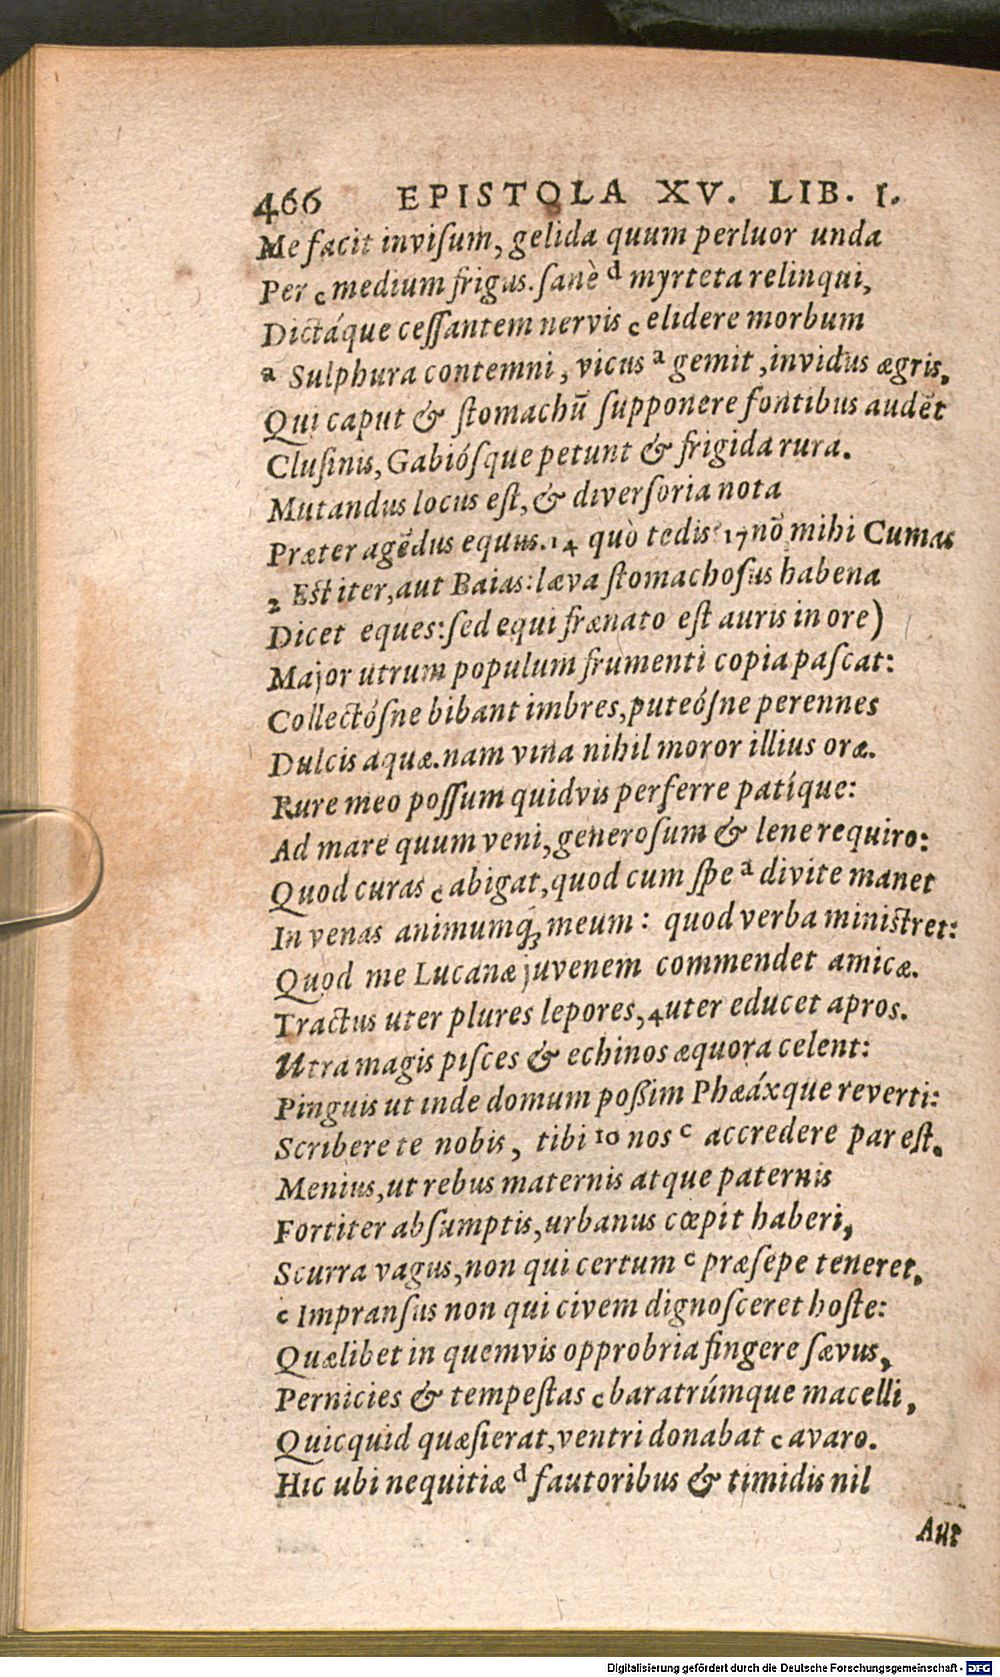 466 EPISTOLA XV. LIB. I.
Me facit inviſum, gelida quum perluor unda
Per c medium frigus. ſanè d myrteta relinqui,
Dictáque ceſſantem nervis c elidere morbum
a Sulphura contemni, vicus a gemit, invidus ægris,
Qui caput & ſtomachū ſupponere fontibus audēt
Cluſinis, Gabióſque petunt & frigida rura.
Mutandus locus eſt, & diverſoria nota
Præter agēdus equus. 14 quò tedis? 17 nō mihi Cumas
2 Eſt iter, aut Baias: læva ſtomachoſus habena
Dicet eques: ſed equi frænato eſt auris in ore)
Major utrum populum frumenti copia paſcat:
Collectóſne bibant imbres, puteóſne perennes
Dulcis aquæ. nam vina nihil moror illius oræ.
Rure meo poſſum quidvis perferre patíque:
Ad mare quum veni, generoſum & lene requiro:
Quod curas c abigat, quod cum ſpe a divite manet
In venas animumq́; meum: quod verba miniſtret:
Quod me Lucanæ juvenem commendet amicæ.
Tractus uter plures lepores, 4 uter educet apros.
Utra magis piſces & echinos æquora celent:
Pinguis ut inde domum poßim Phæáxque reverti:
Scribere te nobis, tibi 10 nos c accredere par eſt.
Menius, ut rebus maternis atque paternis
Fortiter abſumptis, urbanus cœpit haberi,
Scurra vagus, non qui certum c præſepe teneret,
c Impranſus non qui civem dignoſceret hoſte:
Quælibet in quemvis opprobria fingere ſævus,
Pernicies & tempeſtas c baratrúmque macelli,
Quicquid quæſierat, ventri donabat c avaro.
Hic ubi nequitiæ d fautoribus & timidis nil
Aut
Digitalisierung gefördert durch die Deutsche Forschungsgemeinschaft - DFG